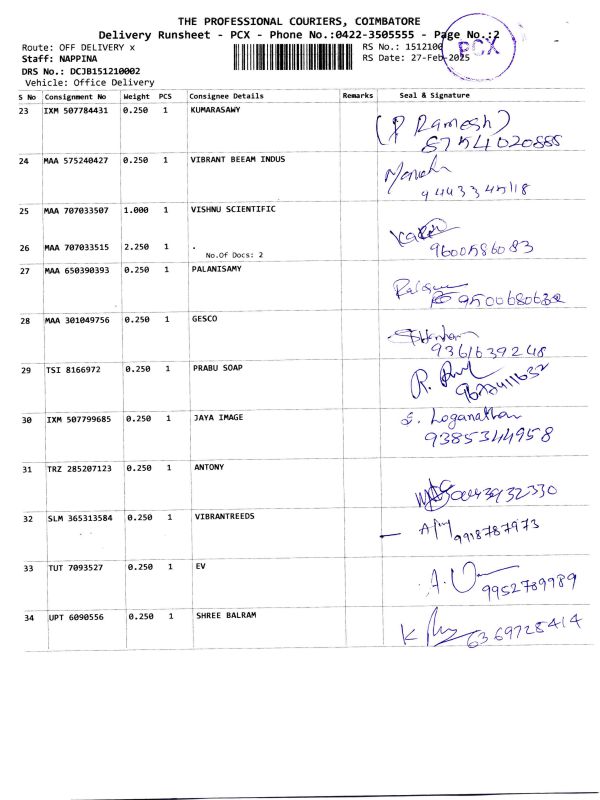 THE PROFESSIONAL COURIERS, COIMBATORE
Delivery Runsheet - PCX - Phone No.:0422-3505555 - Page No.:2
Route: OFF DELIVERY x
RS No.: 1512100
PCX
Staff: NAPPINA
RS Date: 27-Feb-2025
DRS No.: DCJB151210002
Vehicle: Office Delivery
S No Consignment No Weight PCS Consignee Details Remarks Seal & Signature
23 IXM 507784431 0.250 1 KUMARASAWY
(P Ramesh)
8754020855
24 MAA 575240427 0.250 1 VIBRANT BEEAM INDUS
9443345118
25 MAA 707033507 1.000 1 VISHNU SCIENTIFIC
26 MAA 707033515 2.250 1 .
9600586083
No.Of Docs: 2
27 MAA 650390393 0.250 1 PALANISAMY
9500680632
28 MAA 301049756 0.250 1 GESCO
9361639248
29 TSI 8166972 0.250 1 PRABU SOAP
R.
30 IXM 507799685 0.250 1 JAYA IMAGE
S. Loganathan
9385344958
31 TRZ 285207123 0.250 1 ANTONY
32 SLM 365313584 0.250 1 VIBRANTREEDS
9918787973
33 TUT 7093527 0.250 1 EV
A.
9952789989
34 UPT 6090556 0.250 1 SHREE BALRAM
K
6369728414